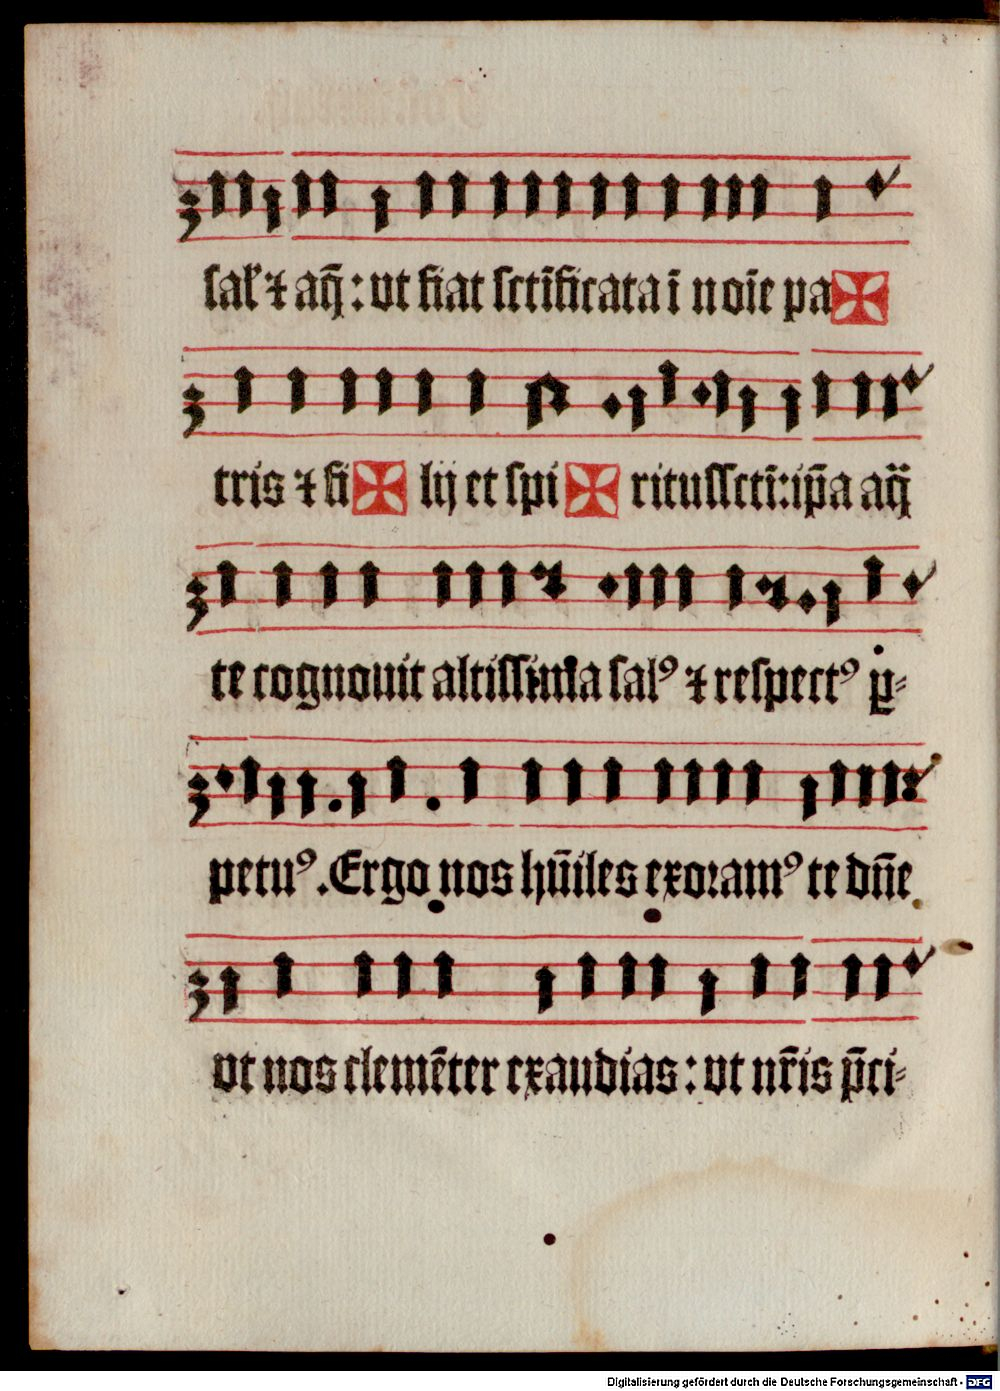 ſal' ⁊ aq̃: vt fiat ſctĩficata ĩ noĩe pa✠
tris ⁊ fi✠lij et ſpi✠rituſſctĩ: ip̃a aq̃
te cognouit altiſſima ſalꝰ ⁊ reſpectꝰ ꝑ⸗
petuꝰ. Ergo nos hũiles exoꝛamꝰ te dñe
vt nos clemẽter exaudias: vt nr̃is p̃ci⸗
Digitalisierung gefördert durch die Deutsche Forschungsgemeinschaft - DFG